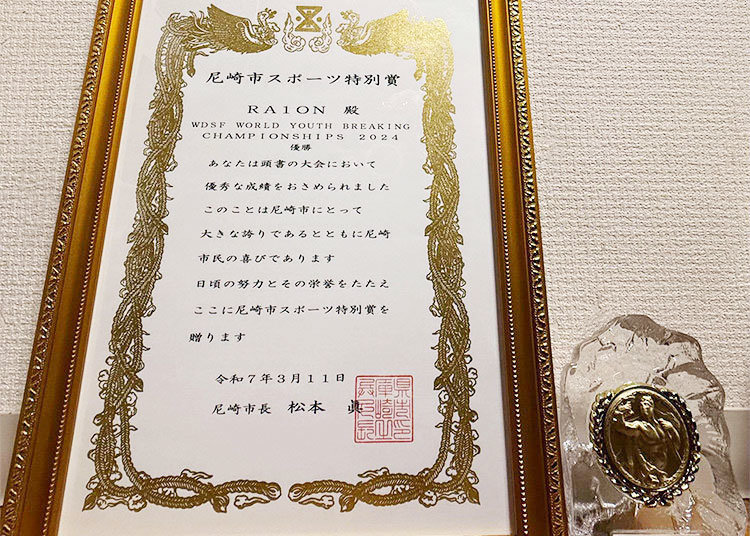 尼崎市スポーツ特別賞
RA1ON 殿
WDSF WORLD YOUTH BREAKING
CHAMPIONSHIPS 2024
優勝
あなたは頭書の大会において
優秀な成績をおさめられました
このことは尼崎市にとって
大きな誇りであるとともに尼崎
市民の喜びであります
日頃の努力とその栄誉をたたえ
ここに尼崎市スポーツ特別賞を
贈ります
令和7年3月11日
尼崎市長 松本 眞